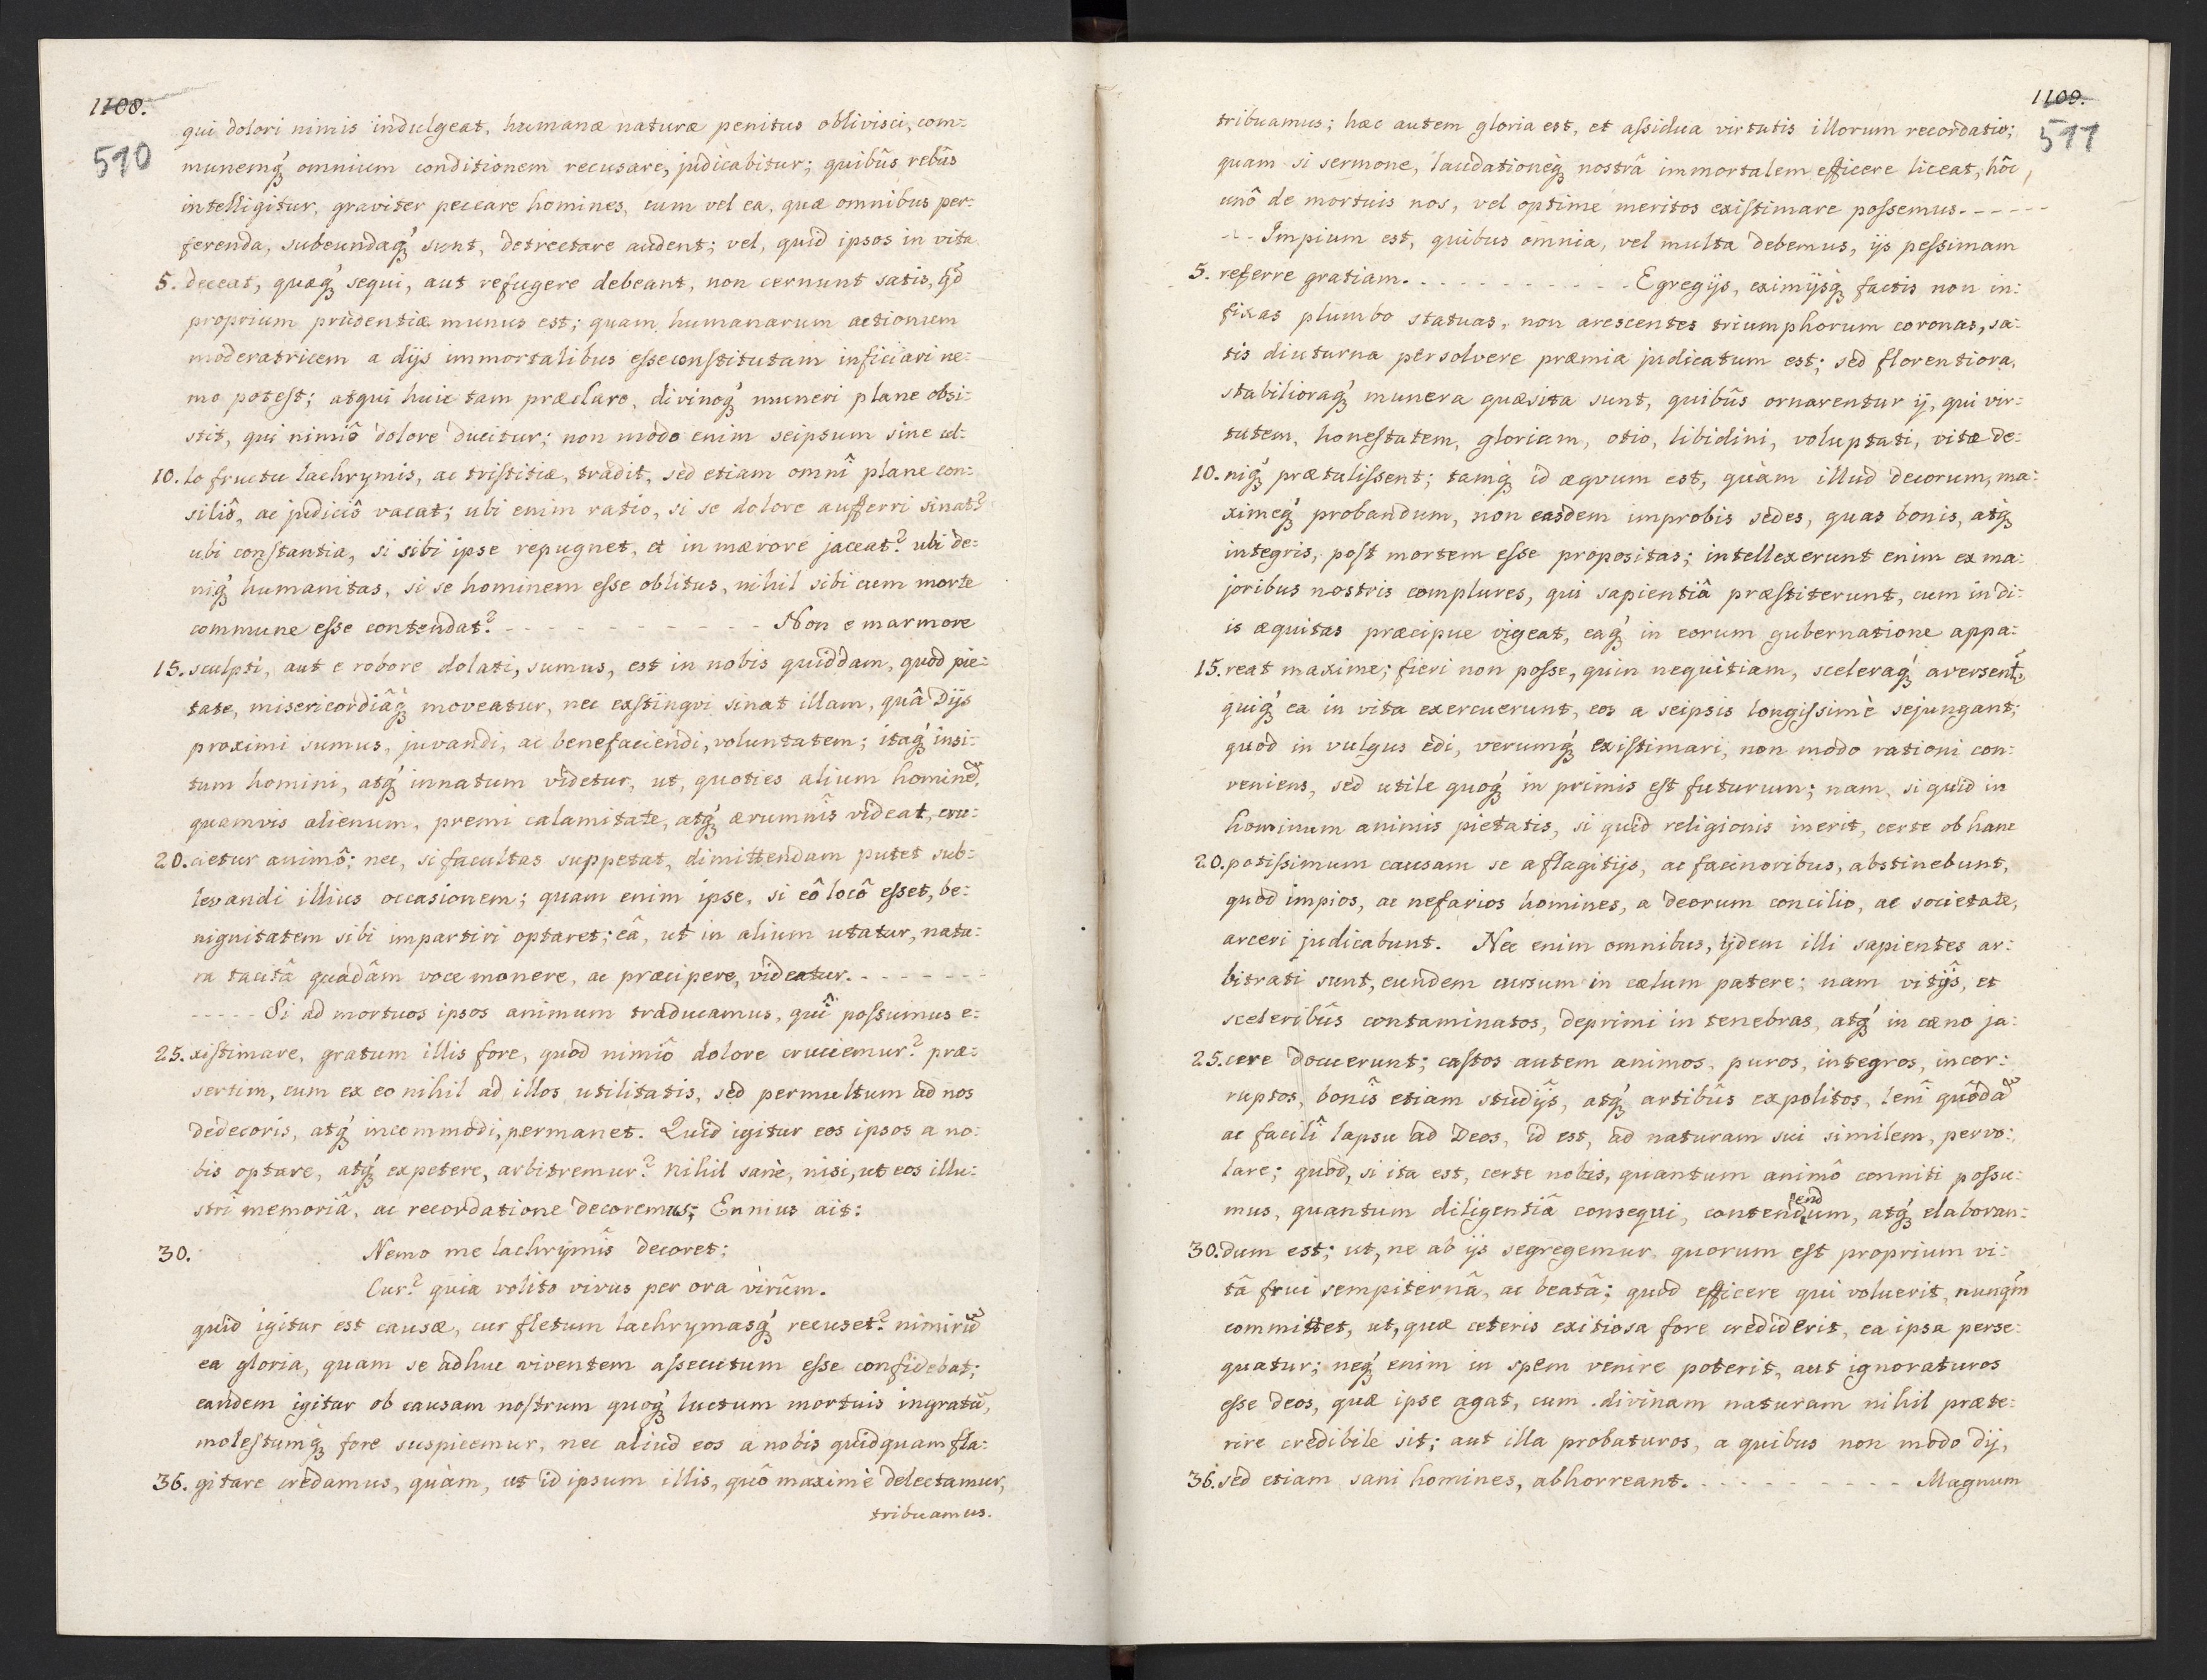 1108.
510
qui dolori nimis indulgeat, humanæ naturæ penitus oblivisci, com=
munemq́ʒ omnium conditionem recusare, judicabitur; quibûs rebûs
intelligitur, graviter peccare homines, cum vel ea, quæ omnibus per=
ferenda, subeundaq́ʒ sunt, detrectare audent; vel, quid ipsos in vita
5. deceat, quæq́ʒ sequi, aut refugere debeant, non cernunt satis, q̃d
proprium prudentiæ munus est; quam humanarum actionum
moderatricem a dijs immortalibus eſse conſtitutam inficiari ne=
mo poteſt; atqui huic tam præclaro, divinoq́ʒ muneri plane obsi=
stit, qui nimiô dolore ducitur; non modo enim seipsum sine ul=
10. lo fructu lachrymis, ac triſtitiæ, tradit, sed etiam omnî plane con=
siliô, ac judiciô vacat; ubi enim ratio, si se dolore aufferri sinat?
ubi conſtantia, si sibi ipse repugnet, et in mærore jaceat? ubi de=
niq́ʒ humanitas, si se hominem eſse oblitus, nihil sibi cum morte
commune eſse contendat? - - - - - - - - - - - - Non e marmore
15. sculpti, aut e robore dolati, sumus, est in nobis quiddam, quod pie=
tate, misericordiâq́ʒ moveatur, nec exſtingvi sinat illam, quâ Dijs
proximi sumus, juvandi, ac benefaciendi, voluntatem; itaq́ʒ insi=
tum homini, atq́ʒ innatum videtur, ut, quoties alium hominẽ,
quamvis alienum, premi calamitate, atq́ʒ ærumnîs videat, cru=
20. cietur animô; nec, si facultas suppetat, dimittendam putet sub=
levandi illius occasionem; quam enim ipse, si eô locô eſset, be=
nignitatem sibi impartiri optaret; eâ, ut in alium utatur, natu=
ra tacitâ quâdâm voce monere, ac præcipere, videatur. - - - - - - -
- - - - - Si ad mortuos ipsos animum traducamus, quî poſsumus e=
25. xiſtimare, gratum illis fore, quod nimiô dolore cruciemur? præ=
sertim, cum ex eo nihil ad illos utilitatis, sed permultum ad nos
dedecoris, atq́ʒ incommodi, permanet. Quid igitur eos ipsos a no=
bis optare, atq́ʒ expetere, arbitremur? nihil sanè, nisi, ut eos illu=
strî memoriâ, ac recordatione decoremus; Ennius ait:
30. Nemo me lachrymîs decoret:
Cur? quia volito vivus per ora virûm.
quid igitur est causæ, cur fletum lachrymasq́ʒ recuset? nimirũ
ea gloria, quam se adhuc viventem aſsecutum eſse confidebat;
eandem igitur ob causam noſtrum quoq́ʒ luctum mortuis ingratũ,
moleſtumq́ʒ fore suspicemur, nec aliud eos a nobis quidquam fla=
36. gitare credamus, quàm, ut id ipsum illis, quô maximè delectamur,
tribuamus.
1109.
511
tribuamus; hæc autem gloria est, et aſsidua virtutis illorum recordatio;
quam si sermone, laudationeq́ʒ nostrâ immortalem efficere liceat, hôc,
unô de mortuis nos, vel optime meritos exiſtimare poſsemus. - - - - -
- - - Impium est, quibus omnia, vel multa debemus, ijs peſsimam
5. referre gratiam. - - - - - - - - - - - Egregijs, eximijsq́ʒ factis non in=
fixas plumbo statuas, non arescentes triumphorum coronas, sa=
tis diuturna persolvere præmia judicatum est; sed florentiora,
stabilioraq́ʒ munera quæsita sunt, quibûs ornarentur ij, qui vir=
tutem, honeſtatem, gloriam, otio, libidini, voluptati, vitæ de=
10. niq́ʒ prætuliſsent; tamq́ʒ id æqvum est, quàm illud decorum, ma=
ximeq́ʒ probandum, non easdem improbis sedes, quas bonis, atq́ʒ
integris, poſt mortem eſse propositas; intellexerunt enim ex ma=
joribus nostris complures, qui sapientiâ præſtiterunt, cum in di=
is æquitas præcipue vigeat, eaq́ʒ in eorum gubernatione appa=
15. reat maxime; fieri non poſse, quin nequitiam, sceleraq́ʒ aversent̃,
quiq́ʒ ea in vita exercuerunt, eos a seipsis longiſsimè sejungant;
quod in vulgus edi, verumq́ʒ exiſtimari, non modo rationi con=
veniens, sed utile quoq́ʒ in primis eſt futurum; nam, si quid in
hominum animis pietatis, si quid religionis inerit, certe ob hanc
20. potiſsimum causam se a flagitijs, ac facinoribus, abstinebunt,
quod impios, ac nefarios homines, a deorum concilio, ac societate,
arceri judicabunt. Nec enim omnibus, ijdem illi sapientes ar=
bitrati sunt, eundem cursum in cælum patere; nam vitijs, et
sceleribûs contaminatos, deprimi in tenebras, atq́ʒ in cæno ja=
25. cere docuerunt; caſtos autem animos, puros, integros, incor=
ruptos, bonîs etiam studijs, atq́ʒ artibûs expolitos, lenî quôdã
ac facilî lapsu ad Deos, id est, ad naturam sui similem, pervo=
lare; quod, si ita est, certe nobis, quantum animô conniti poſsu=
mus, quantum diligentiâ consequi, contendendum, atq́ʒ elaboran=
30. dum est; ut, ne ab ijs segregemur quorum eſt proprium vi=
tâ frui sempiternâ, ac beatâ; quod efficere qui voluerit, nunq̃m
committet, ut, quæ ceteris exitiosa fore crediderit, ea ipsa perse=
quatur; neq́ʒ enim in spem venire poterit, aut ignoraturos
eſse deos, quæ ipse agat, cum divinam naturam nihil præte=
rire credibile sit; aut illa probaturos, a quibus non modo dij,
36. sed etiam sani homines, abhorreant. - - - - - - - - - Magnum